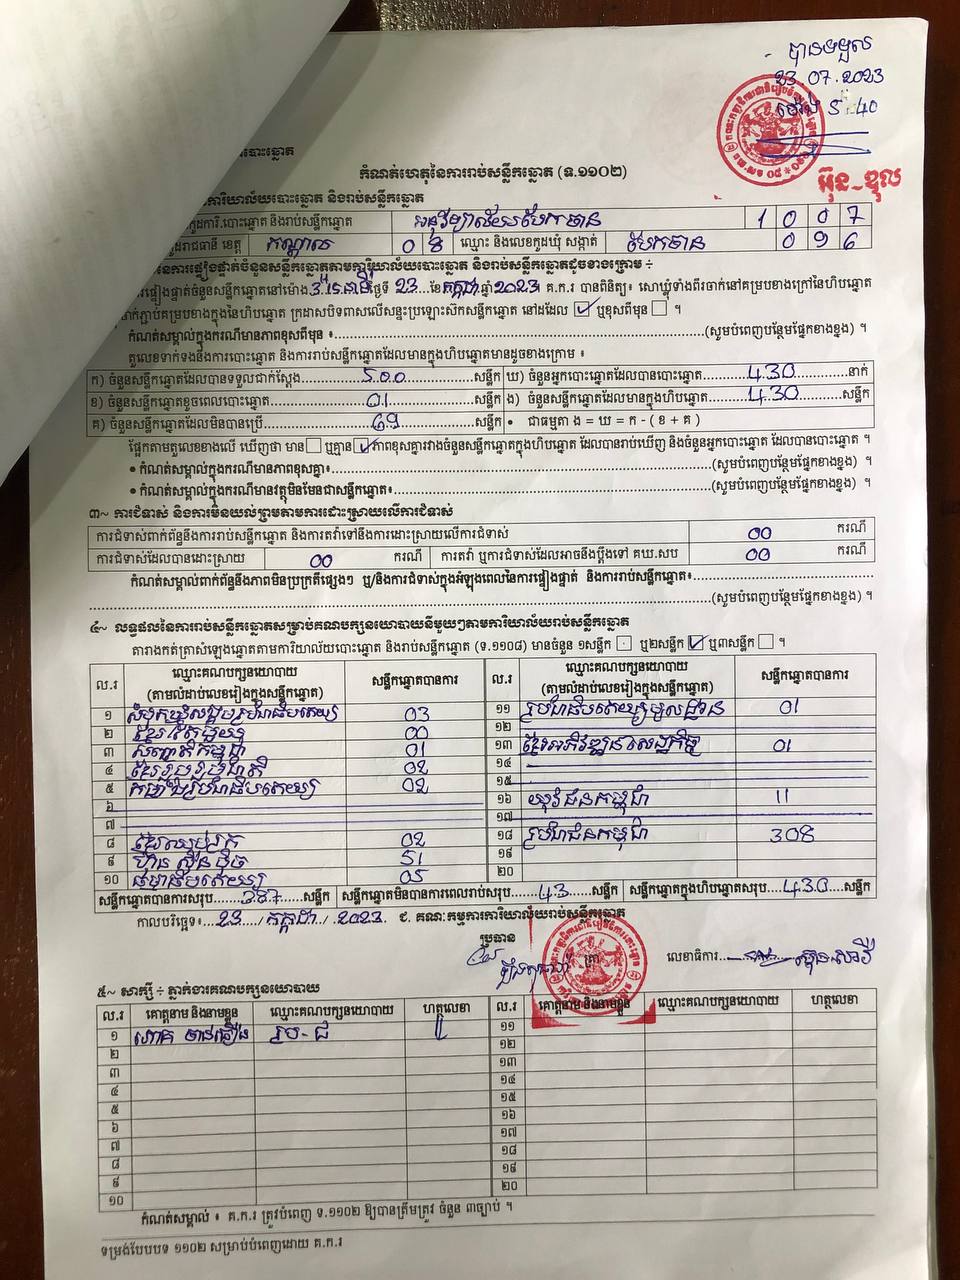 - បានទទួល
23 07.2023
ម៉ោង 5 40
អ៊ុន-ឌុល
បោះឆ្នោត
កំណត់ហេតុនៃការរាប់សន្លឹកឆ្នោត (ទ.១១០២)
ការិយាល័យបោះឆ្នោត និងរាប់សន្លឹកឆ្នោត
កូដការិ.បោះឆ្នោត និងរាប់សន្លឹកឆ្នោត 1 0 0 7
រាជធានី ខេត្ត កណ្តាល 0 8 ឈ្មោះ និងលេខកូដឃុំ សង្កាត់ បែកចាន 0 9 6
នៃការផ្ទៀងផ្ទាត់ចំនួនសន្លឹកឆ្នោតតាមការិយាល័យបោះឆ្នោត និងរាប់សន្លឹកឆ្នោតដូចខាងក្រោម ÷
ផ្ទៀងផ្ទាត់ចំនួនសន្លឹកឆ្នោតនៅម៉ោង ថ្ងៃទី 23 ខែ កក្កដា ឆ្នាំ 2023 គ.ក.រ បានពិនិត្យ៖ សោឃ្លុំទាំងពីរចាក់នៅគម្របខាងក្រៅនៃហិបឆ្នោត
ចាក់ភ្ជាប់គម្របខាងក្នុងនៃហិបឆ្នោត ក្រដាសបិទពាសលើសន្ទះប្រឡោះស៊កសន្លឹកឆ្នោត នៅដដែល ✓ ឬខុសពីមុន ។
កំណត់សម្គាល់ក្នុងករណីមានភាពខុសពីមុន ៖ (សូមបំពេញបន្ថែមផ្នែកខាងខ្នង) ។
តួលេខទាក់ទងនឹងការបោះឆ្នោត និងការរាប់សន្លឹកឆ្នោតដែលមានក្នុងហិបឆ្នោតមានដូចខាងក្រោម ៖
ក) ចំនួនសន្លឹកឆ្នោតដែលបានទទួលជាក់ស្តែង 500 សន្លឹក ឃ) ចំនួនអ្នកបោះឆ្នោតដែលបានបោះឆ្នោត 430 នាក់
ខ) ចំនួនសន្លឹកឆ្នោតខូចពេលបោះឆ្នោត 01 សន្លឹក ង) ចំនួនសន្លឹកឆ្នោតដែលមានក្នុងហិបឆ្នោត 430 សន្លឹក
គ) ចំនួនសន្លឹកឆ្នោតដែលមិនបានប្រើ 69 សន្លឹក • ជាធម្មតា ង = ឃ = ក - ( ខ + គ )
ផ្អែកតាមតួលេខខាងលើ ឃើញថា មាន ឬគ្មាន ✓ ភាពខុសគ្នារវាងចំនួនសន្លឹកឆ្នោតក្នុងហិបឆ្នោត ដែលបានរាប់ឃើញ និងចំនួនអ្នកបោះឆ្នោត ដែលបានបោះឆ្នោត ។
• កំណត់សម្គាល់ក្នុងករណីមានភាពខុសគ្នា៖ (សូមបំពេញបន្ថែមផ្នែកខាងខ្នង) ។
• កំណត់សម្គាល់ក្នុងករណីមានវត្ថុមិនមែនជាសន្លឹកឆ្នោត៖ (សូមបំពេញបន្ថែមផ្នែកខាងខ្នង) ។
៣~ ការជំទាស់ និងការមិនយល់ព្រមតាមការដោះស្រាយលើការជំទាស់
ការជំទាស់ពាក់ព័ន្ធនឹងការរាប់សន្លឹកឆ្នោត និងការតវ៉ាទៅនឹងការដោះស្រាយលើការជំទាស់ 00 ករណី
ការជំទាស់ដែលបានដោះស្រាយ 00 ករណី ការតវ៉ា ឬការជំទាស់ដែលអាចនឹងប្តឹងទៅ គឃ.សប 00 ករណី
កំណត់សម្គាល់ពាក់ព័ន្ធនឹងភាពមិនប្រក្រតីផ្សេងៗ ឬ/និងការជំទាស់ក្នុងអំឡុងពេលនៃការផ្ទៀងផ្ទាត់ និងការរាប់សន្លឹកឆ្នោត៖
(សូមបំពេញបន្ថែមផ្នែកខាងខ្នង) ។
៤~ លទ្ធផលនៃការរាប់សន្លឹកឆ្នោតសម្រាប់គណបក្សនយោបាយនីមួយៗតាមការិយាល័យរាប់សន្លឹកឆ្នោត
តារាងកត់ត្រាសំឡេងឆ្នោតតាមការិយាល័យបោះឆ្នោត និងរាប់សន្លឹកឆ្នោត (ទ.១១០៨) មានចំនួន ១សន្លឹក ឬ២សន្លឹក ✓ ឬ៣សន្លឹក ។
ល.រ ឈ្មោះគណបក្សនយោបាយ (តាមលំដាប់លេខរៀងក្នុងសន្លឹកឆ្នោត) សន្លឹកឆ្នោតបានការ ល.រ ឈ្មោះគណបក្សនយោបាយ (តាមលំដាប់លេខរៀងក្នុងសន្លឹកឆ្នោត) សន្លឹកឆ្នោតបានការ
១ សំបុកឃ្មុំសង្គមប្រជាធិបតេយ្យ 03 ១១ ប្រជាធិបតេយ្យមូលដ្ឋាន 01
២ 00 ១២
៣ សញ្ជាតិកម្ពុជា 01 ១៣ ខ្មែរអភិវឌ្ឍន៍សេដ្ឋកិច្ច 01
៤ ខ្មែររួបរួមជាតិ 02 ១៤
៥ កម្លាំងប្រជាធិបតេយ្យ 02 ១៥
៦ ១៦ យុវជនកម្ពុជា 11
៧ ១៧
៨ ខ្មែរឈប់ក្រ 02 ១៨ ប្រជាជនកម្ពុជា 308
៩ ហ៊្វុនស៊ិនប៉ិច 51 ១៩
១០ ធម្មាធិបតេយ្យ 05 ២០
សន្លឹកឆ្នោតបានការសរុប 387 សន្លឹក សន្លឹកឆ្នោតមិនបានការពេលរាប់សរុប 43 សន្លឹក សន្លឹកឆ្នោតក្នុងហិបឆ្នោតសរុប 430 សន្លឹក
កាលបរិច្ឆេទ៖ 23 / កក្កដា / 2023 ជ. គណៈកម្មការការិយាល័យរាប់សន្លឹកឆ្នោត
ប្រធាន ត្រា លេខាធិការ
៥~ សាក្សី ÷ ភ្នាក់ងារគណបក្សនយោបាយ
ល.រ គោត្តនាម និងនាមខ្លួន ឈ្មោះគណបក្សនយោបាយ ហត្ថលេខា ល.រ គោត្តនាម និងនាមខ្លួន ឈ្មោះគណបក្សនយោបាយ ហត្ថលេខា
១ ប្រ-ជ ១១
២ ១២
៣ ១៣
៤ ១៤
៥ ១៥
៦ ១៦
៧ ១៧
៨ ១៨
៩ ១៩
១០ ២០
កំណត់សម្គាល់ ៖ គ.ក.រ ត្រូវបំពេញ ទ.១១០២ ឱ្យបានត្រឹមត្រូវ ចំនួន ៣ច្បាប់ ។
ទម្រង់បែបបទ ១១០២ សម្រាប់បំពេញដោយ គ.ក.រ